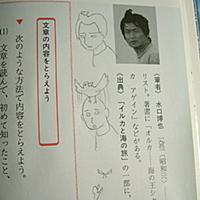 〈筆者〉水口博也
リスト。著書に「オルカ
カ　アゲイン」などがある。
〈出典〉「イルカと海の旅」の一部に、
文章の内容をとらえよう
次のような方法で内容をとらえよう。
(1) 文章を読んで、初めて知ったこと、